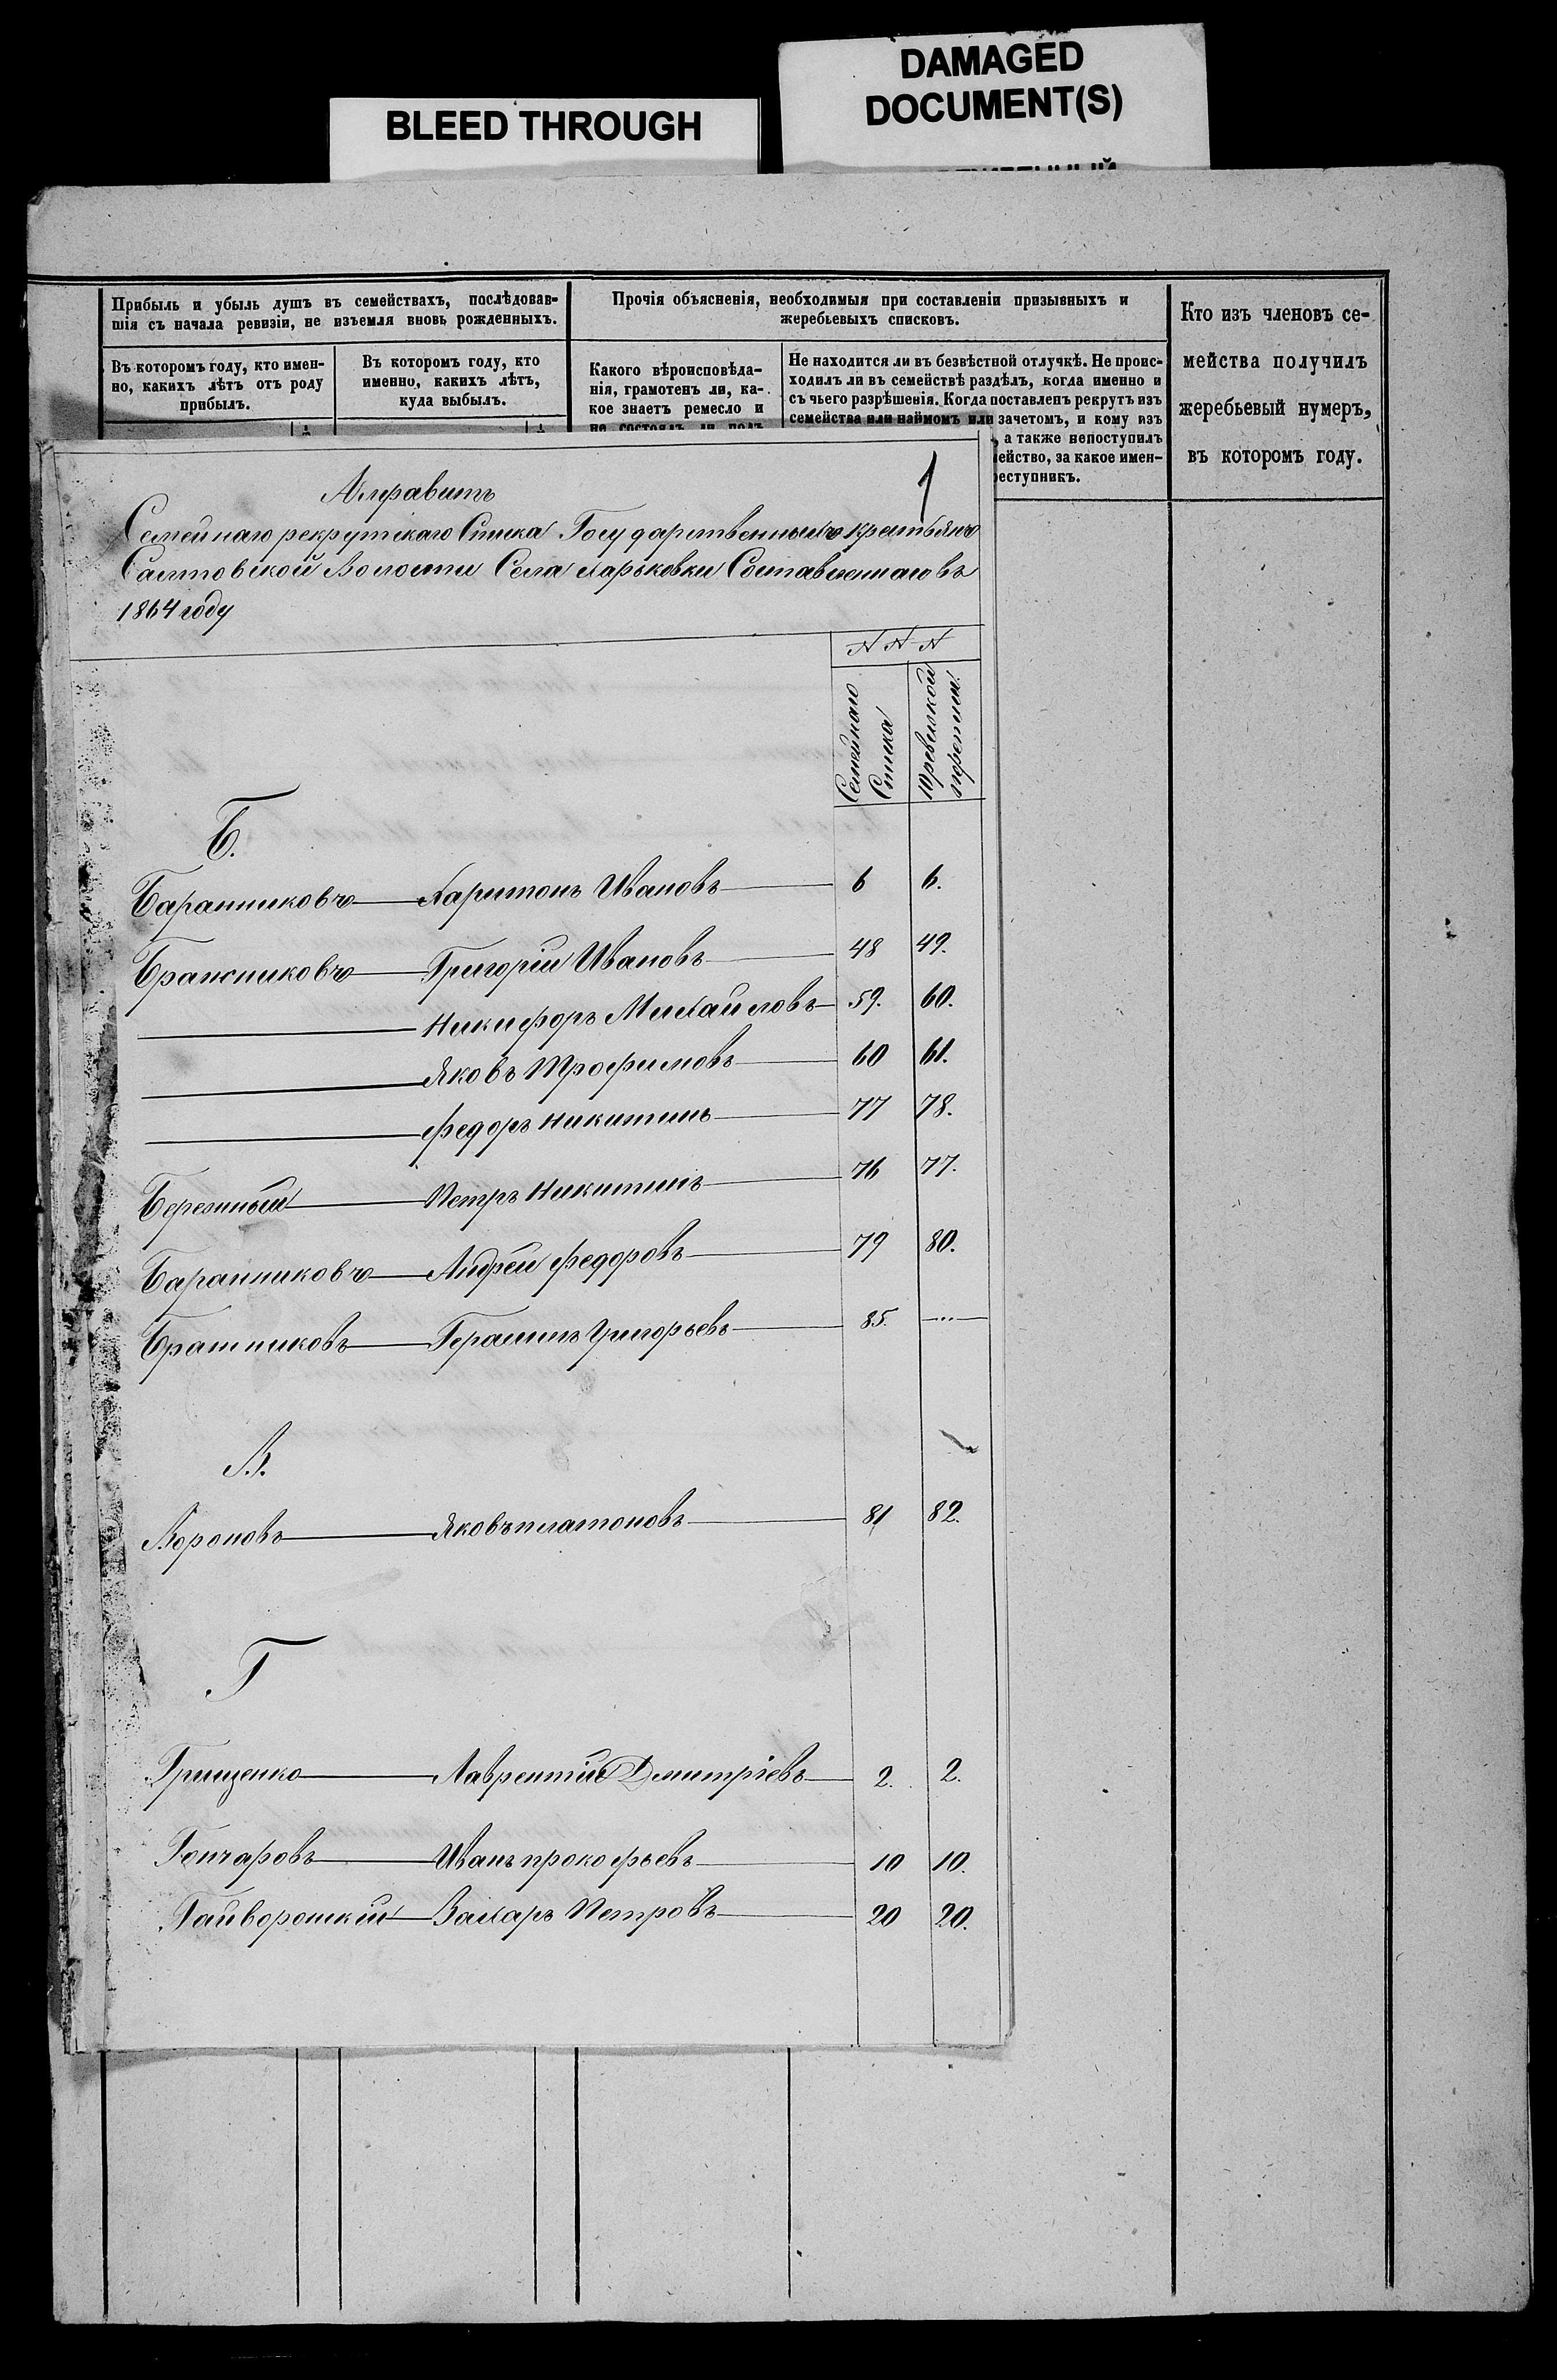 DAMAGED
DOCUMENT(S)
BLEED THROUGH
Прибыль и убыль душъ въ семействахъ, послѣдовав-
шія съ начала ревизіи, не изъемля вновь рожденныхъ.
Въ которомъ году, кто имен-
но, какихъ лѣтъ отъ роду
прибылъ.
Въ которомъ году, кто
именно, какихъ лѣтъ,
куда выбылъ.
Прочія объясненія, необходимыя при составленіи призывныхъ и
жеребьевыхъ списковъ.
Какого вѣроисповѣда-
нія, грамотенъ ли, ка-
кое знаетъ ремесло и
не состоялъ ли подъ
Не находится ли въ безвѣстной отлучкѣ. Не проис-
ходилъ ли въ семействѣ раздѣлъ, когда именно и
съ чьего разрѣшенія. Когда поставленъ рекрутъ изъ
семейства или наймомъ или зачетомъ, и кому изъ
, а также непоступилъ
ейство, за какое имен-
реступникъ.
Кто изъ членовъ се-
мейства получилъ
жеребьевый нумеръ,
въ которомъ году.
1
Алфавитъ
Семейнаго рекрутскаго Списка Государственныхъ крестьянъ
Салтовской Волости Села Харьковки Составленнаго въ
1864 году
N N N
Семейнаго Списка
10 ревизской
Б.
Баранниковъ Харитонъ Ивановъ 6 6.
Григорій Ивановъ 48 49.
Никифоръ Михайловъ 59. 60.
Яковъ Трофимовъ 60 61.
Федоръ Никитинъ 77 78.
Петръ Никитинъ 76 77.
Баранниковъ Андрей Федоровъ 79 80.
Братниковъ Григорьевъ 85.
В.
Вороновъ Яковъ Платоновъ 81 82.
Г
Грищенко Лаврентій Дмитріевъ 2. 2.
Гончаровъ Иванъ Прокофьевъ 10 10.
Гайворонскій Захаръ Петровъ 20 20.